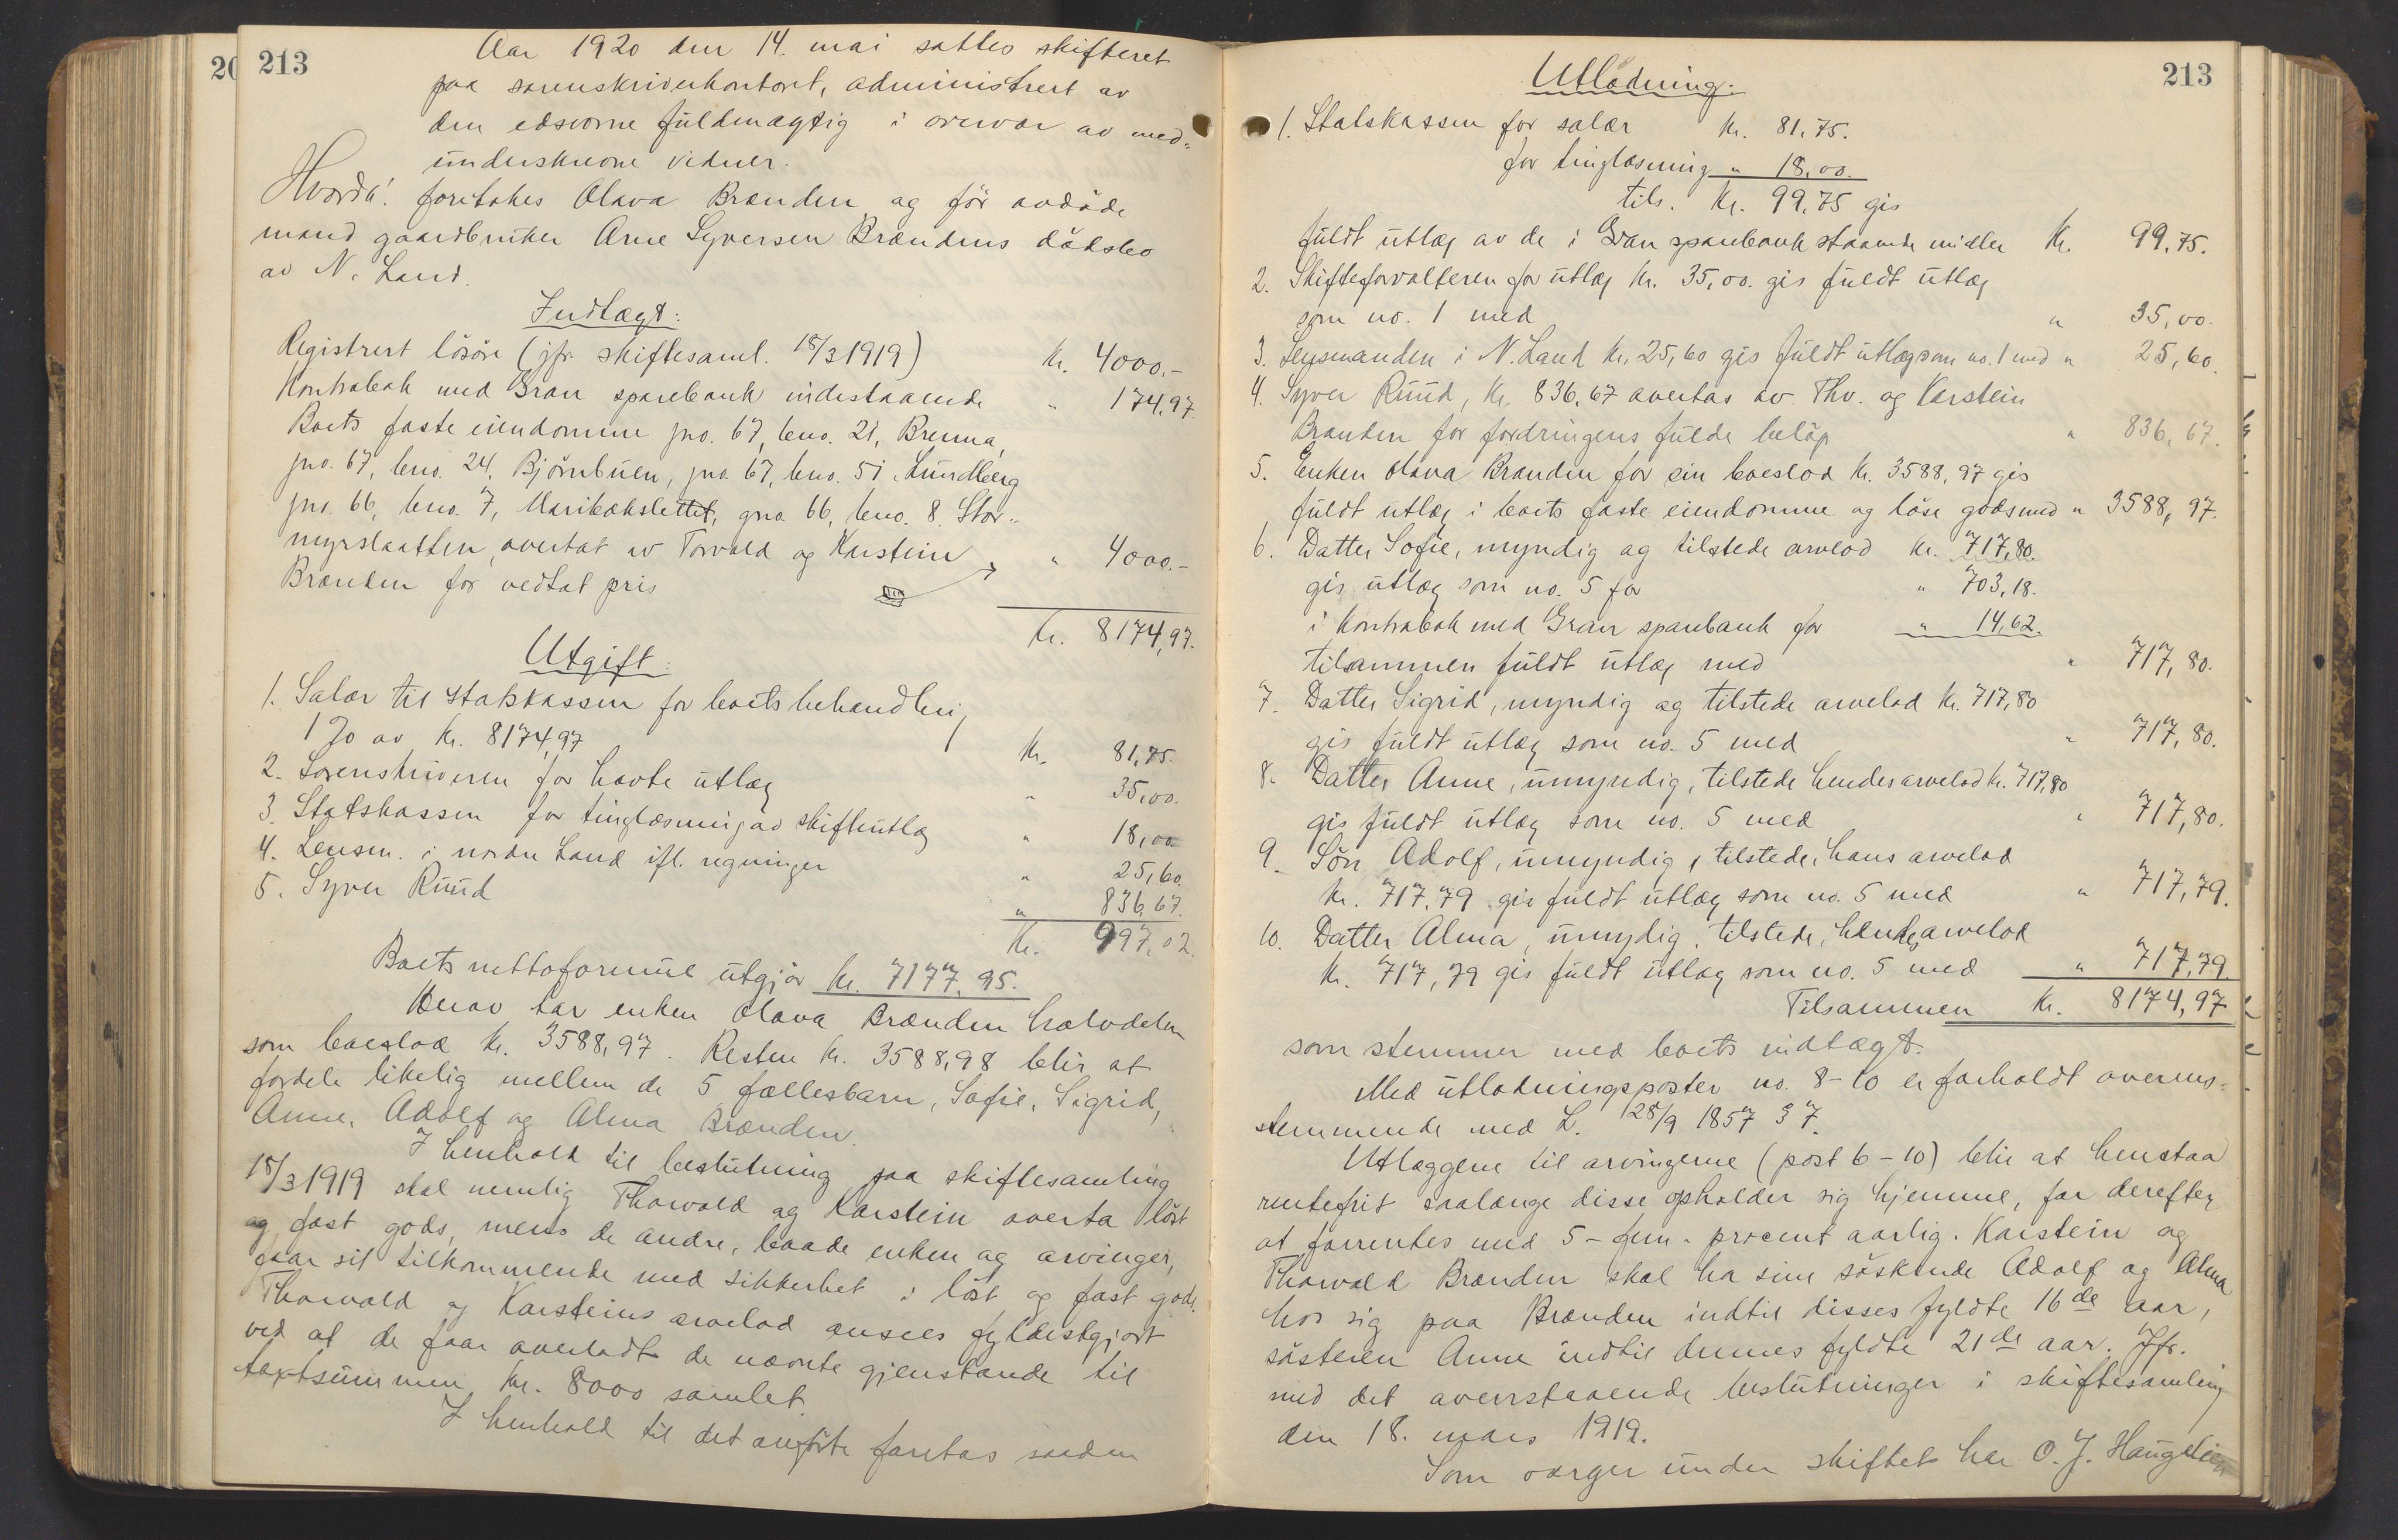 20
213
Aar 1920 den 14. mai sattes skifteret
paa sorenskriverkontoret, administrert av
den edsvorne fuldmægtig i overvær av med-
underskrevne vidner.
Hvorda! foretokes Olava Brænden og før avdøde
mand gaardbruker Arne Syversen Brændens dødsbo
av N. Land.
Indtægt:
Registrert løsøre (jfr. skiftesaml. 18/3 1919) Kr. 4000.-
Kontrabok med Gran sparebank indestaaende " 174,97.
Boets faste eiendomme gno. 67, bno. 21, Brenna,
gno. 67, bno. 24, Bjørnbuen, gno. 67, bno. 51, Lundberg
gno. 66, bno. 7, Maribækslettet, gno. 66, bno. 8. Stor-
myrslaatten, overtat av Torvald og Karstein
Brænden for vedtat pris " 4000.-
Kr. 8174,97.
Utgift:
1. Salær til statskassen for boets behandling
1 % av kr. 8174,97 Kr. 81,75.
2. Sorenskriveren for havte utlæg " 35,00.
3. Statskassen for tinglæsning av skifteutlæg " 18,00
4. Lensm. i nordre Land ifl. regninger " 25,60.
5. Syver Ruud " 836,67.
Kr. 997,02.
Boets nettoformue utgjør kr. 7177,95.
Herav har enken Olava Brænden halvdelen
som boeslod kr. 3588,97. Resten kr. 3588,98 blir at
fordele likelig mellem de 5 fællesbarn, Sofie, Sigrid,
Anne, Adolf og Alma Brænden.
I henhold til beslutning paa skiftesamling
18/3 1919 skal nemlig Thorvald og Karstein overta løst
og fast gods, mens de andre, baade enken og arvinger,
faar sit tilkommende med sikkerhet i løst og fast gods.
Thorvald og Karsteins arvelod ansees fyldestgjort
ved at de faar overladt de nævnte gjenstande til
taxtsummen kr. 8000 samlet.
I henhold til det anførte foretas saadan
213
Utlodning:
1. Statskassen for salær kr. 81,75.
for tinglæsning " 18,00.
tils. kr. 99,75 gis
fuldt utlæg av de i Gran sparebank staaende midler Kr. 99,75.
2. Skifteforvalteren for utlæg kr. 35,00. gis fuldt utlæg
som no. 1 med " 35,00.
3. Lensmanden i N. Land kr. 25,60 gis fuldt utlæg som no. 1 med " 25,60.
4. Syver Ruud, kr. 836,67 overtas av Thv. og Karstein
Brænden for fordringens fulde beløp " 836,67.
5. Enken Olava Brænden for sin boeslod kr. 3588,97 gis
fuldt utlæg i boets faste eiendomme og løse gods med " 3588,97.
6. Datter Sofie, myndig og tilstede arvelod kr. 717,80.
gis utlæg som no. 5 for " 703,18.
i kontrabok med Gran sparebank for " 14,62.
tilsammen fuldt utlæg med " 717,80.
7. Datter Sigrid, myndig og tilstede arvelod kr. 717,80
gis fuldt utlæg som no. 5 med " 717,80.
8. Datter Anne, umyndig, tilstede hendes arvelod kr. 717,80
gis fuldt utlæg som no. 5 med " 717,80.
9. Søn Adolf, umyndig, tilstede, hans arvelod
kr. 717,79 gis fuldt utlæg som no. 5 med " 717,79.
10. Datter Alma, umydig, tilstede, hendes arvelod
kr. 717,79 gis fuldt utlæg som no. 5 med " 717,79.
Tilsammen Kr. 8174,97
som stemmer med boets indtægt.
Med utlodningsposter no. 8-10 er forholdt overens-
stemmende med L. 28/9 1857 § 7.
Utlæggene til arvingerne (post 6-10) blir at henstaa
rentefrit saalænge disse opholder sig hjemme, for derefter
at forrentes med 5 - fem - procent aarlig. Karstein og
Thorvald Brænden skal ha sine søskende Adolf og Alma
hos sig paa Brænden indtil disses fyldte 16de aar,
søsteren Anne indtil dennes fyldte 21de aar. Jfr.
med det overstaaende beslutninger i skiftesamling
den 18. mars 1919.
Som værger under skiftet har O. J. Haugelien